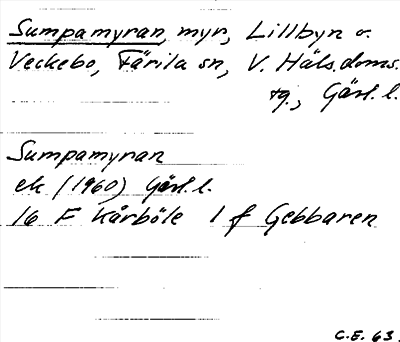 Sumpamyran, myr, Lillbyn o.
Veckebo, Färila sn, V. Häls. doms.
tg., Gävl. l.
Sumpamyran
ek (1960) Gävl. l.
16 F Kårböle 1 f Gebbaren
C.E. 63.